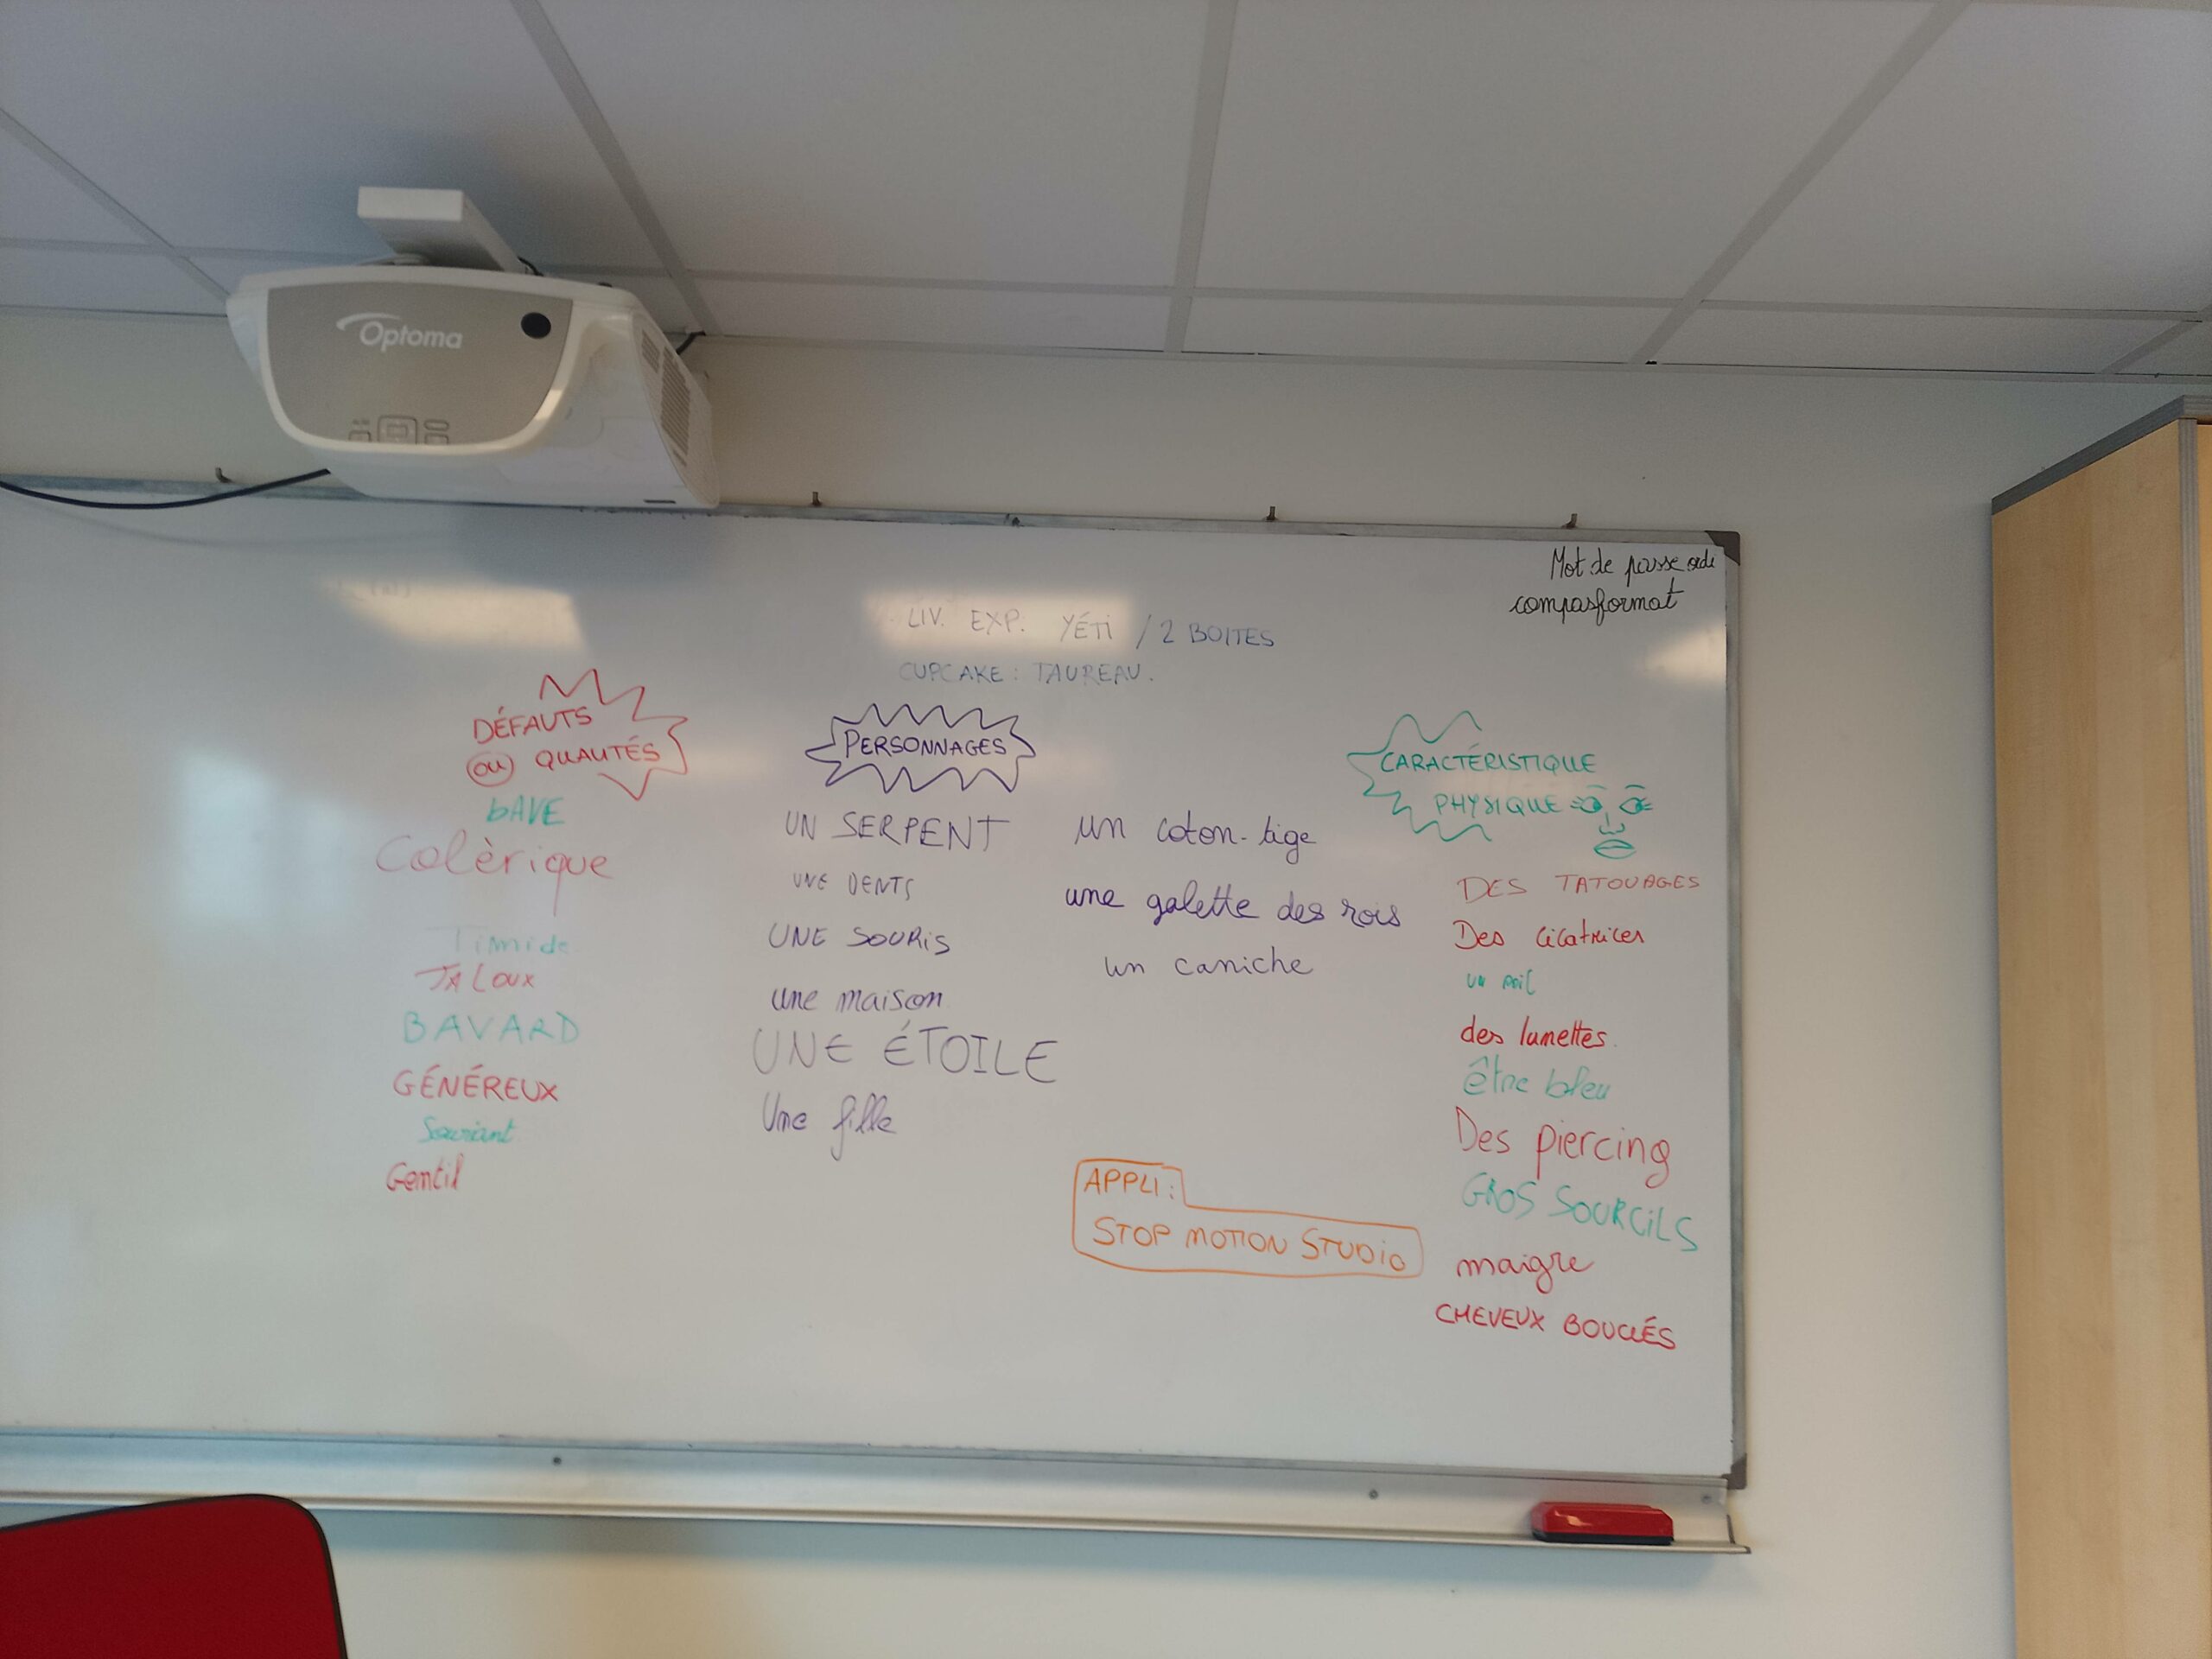 Optoma
Mot de passe ordi
compasformat
LIV. EXP. YÉTI / 2 BOITES
CUPCAKE : TAUREAU.
DÉFAUTS
OU QUALITÉS
bAVE
Colèrique
Timide
JALOUX
BAVARD
GÉNÉREUX
Souriant
Gentil
PERSONNAGES
UN SERPENT
UNE DENTS
UNE SOURIS
une maison
UNE ÉTOILE
Une fille
un coton-tige
une galette des rois
un caniche
APPLI :
STOP MOTION STUDIO
CARACTÉRISTIQUE
PHYSIQUE
DES TATOUAGES
Des cicatrices
un poil
des lunettes.
être bleu
Des piercing
GROS SOURCILS
maigre
CHEVEUX BOUCLÉS